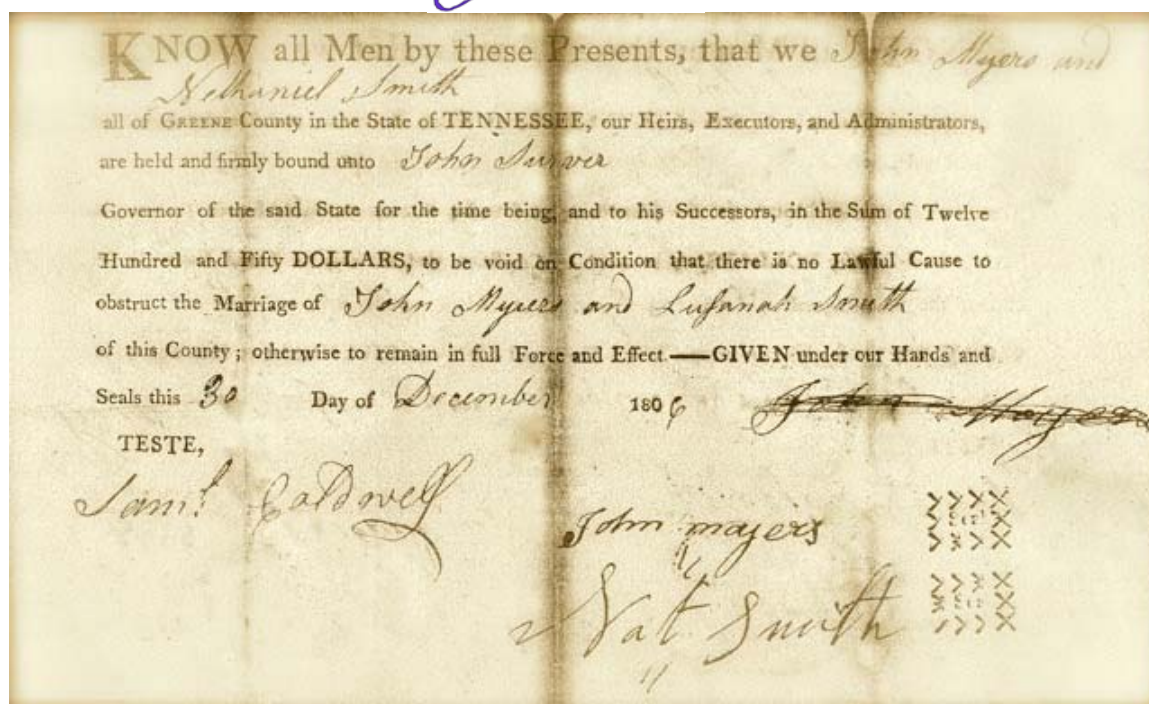 KNOW all Men by these Presents, that we John Myers and
Nethaniel Smith
all of GREENE County in the State of TENNESSEE, our Heirs, Executors, and Administrators,
are held and firmly bound unto John Surver
Governor of the said State for the time being, and to his Successors, in the Sum of Twelve
Hundred and Fifty DOLLARS, to be void on Condition that there is no Lawful Cause to
obstruct the Marriage of John Myers and Lusanah Smith
of this County; otherwise to remain in full Force and Effect —GIVEN under our Hands and
Seals this 30 Day of December 1806 John Moyers
TESTE,
Saml Caldwell
John mayers
Seal
Nat Smith
Seal